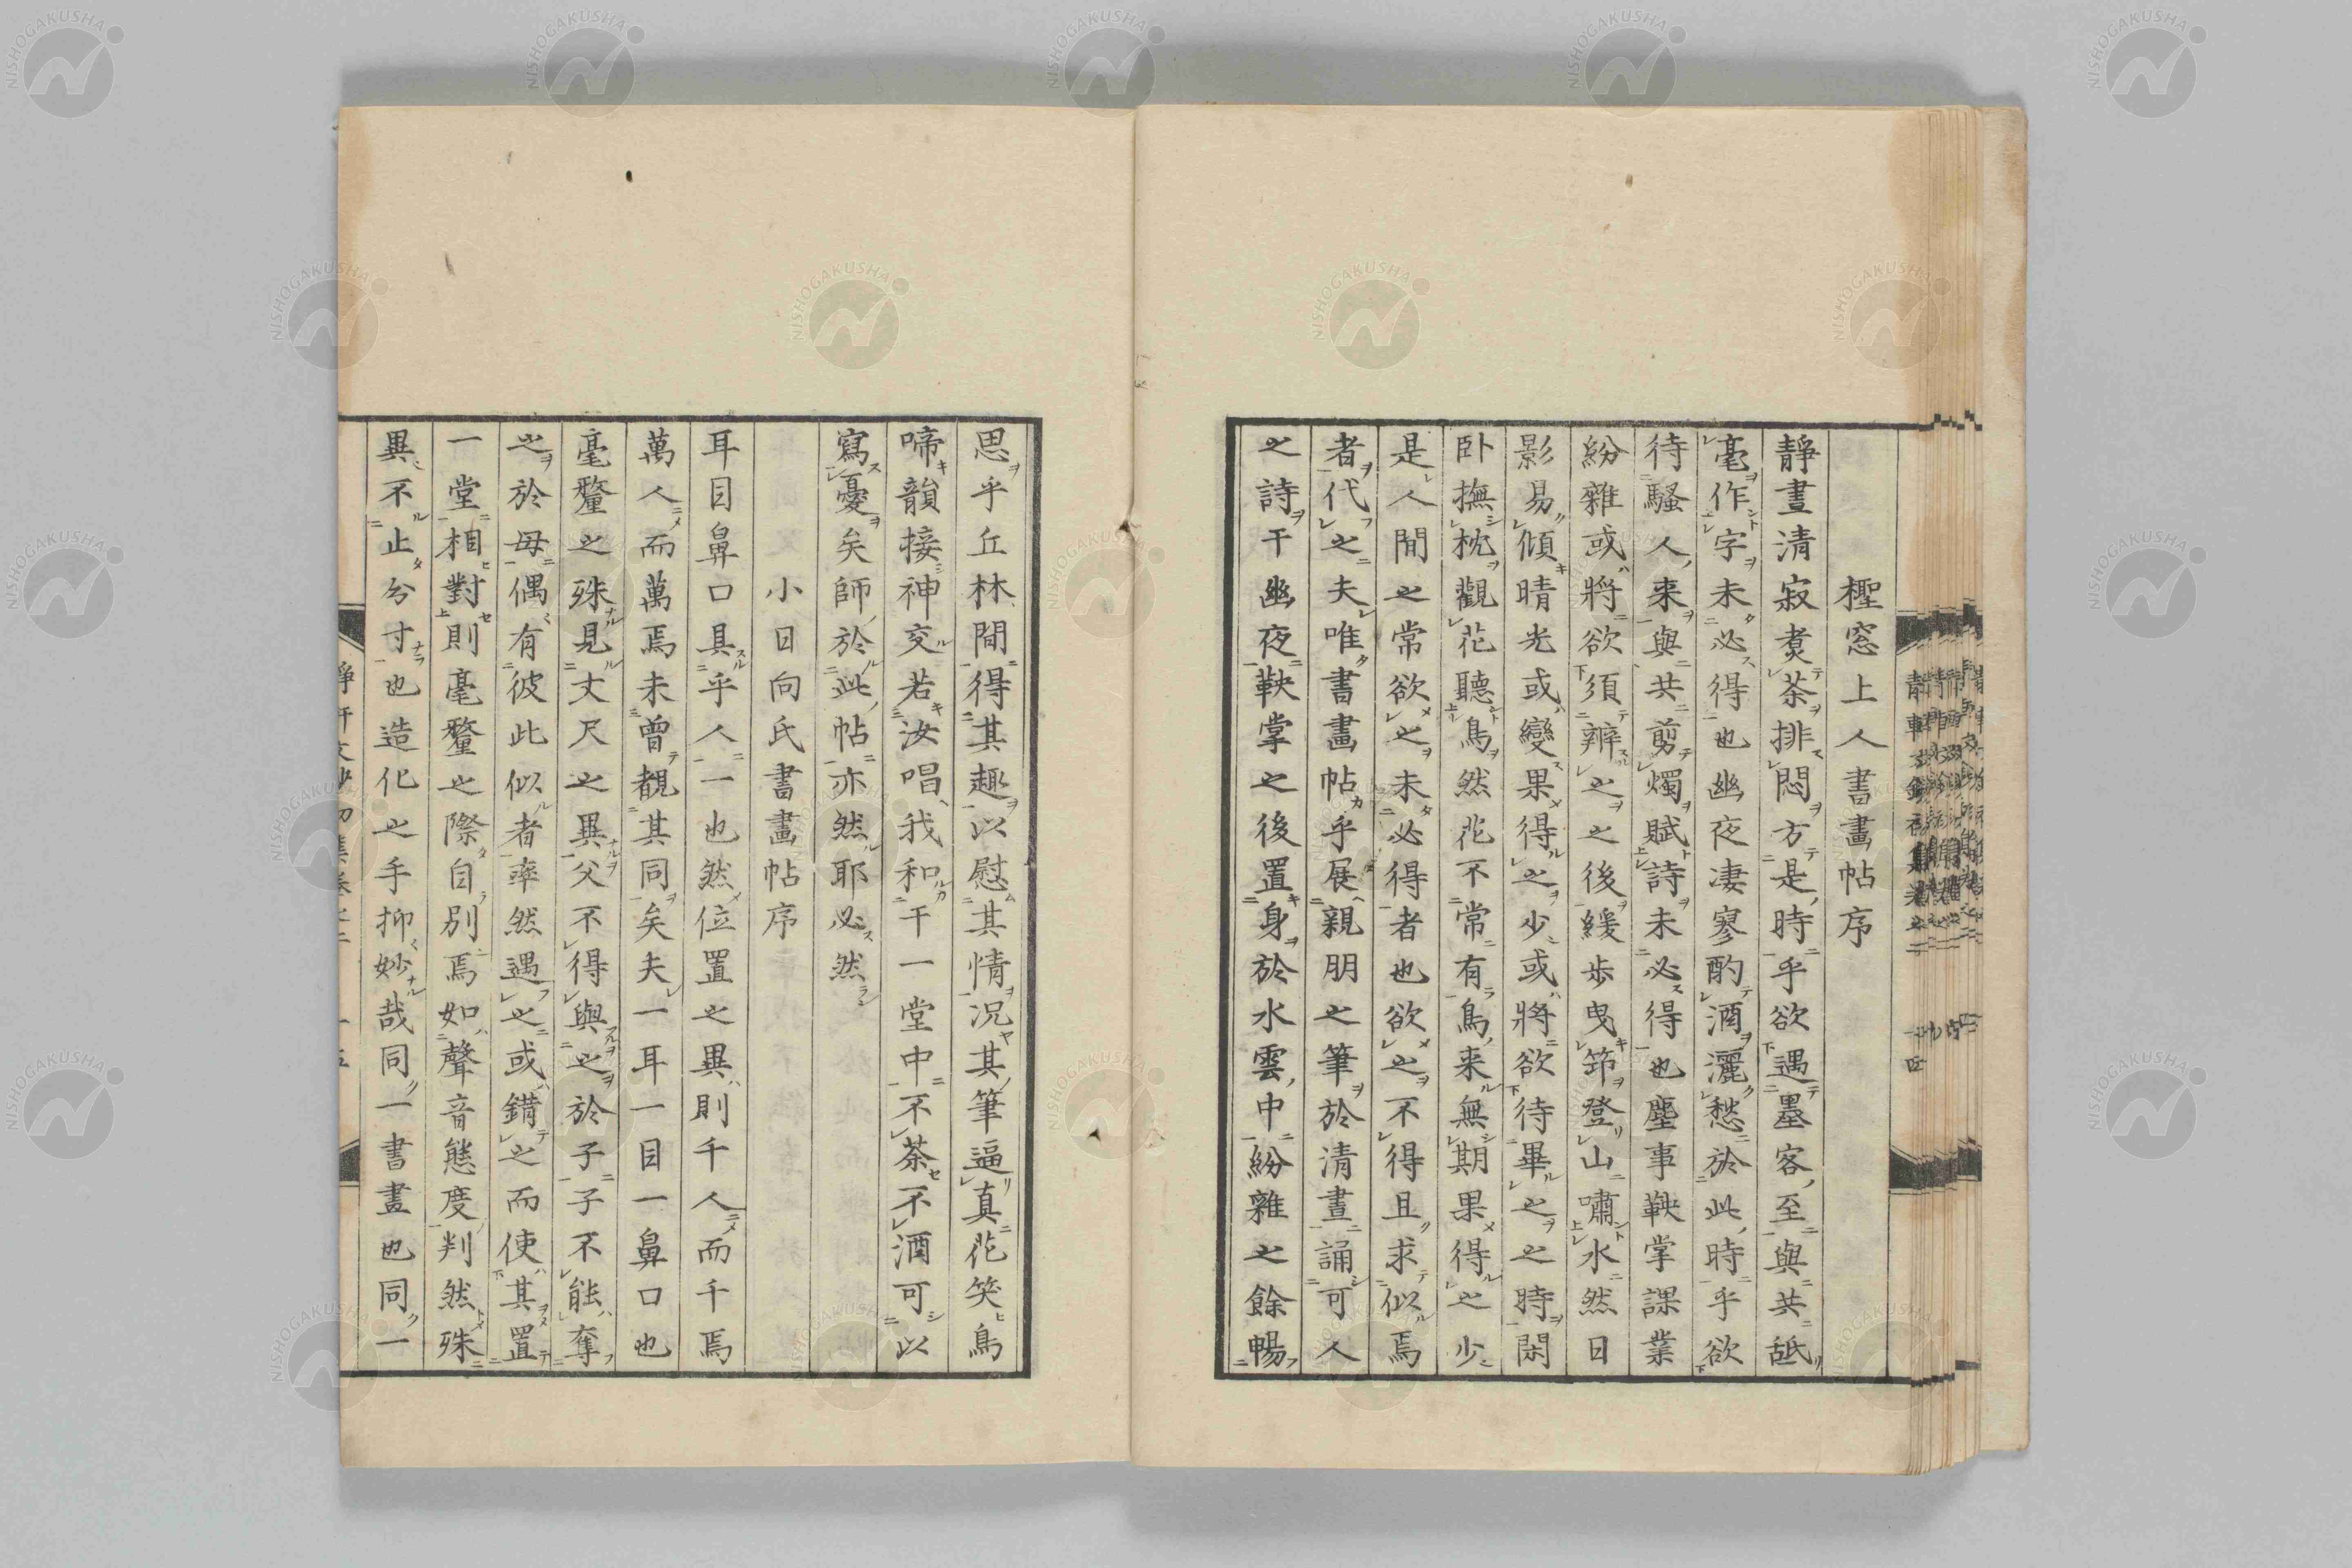 檉窓上人書畫帖序
靜晝清寂煑茶排悶方是時乎欲遇墨客至與共舐
毫作字未必得也幽夜凄寥酌酒灑愁於此時乎欲
待騷人来與共剪燭賦詩未必得也塵事鞅掌課業
紛雜或將欲須辨之之後緩歩曳筇登山嘯水然日
影易傾晴光或變果得之少或將欲待畢之之時閑
卧撫枕觀花聽鳥然花不常有鳥来無期果得之少
是人間之常欲之未必得者也欲之不得且求似焉
者代之夫唯書畫帖乎展親朋之筆於清晝誦可人
之詩干幽夜鞅掌之後置身於水雲中紛雜之餘暢
思乎丘林間得其趣以慰其情况其筆逼真花笑鳥
啼韻接神交若汝唱我和干一堂中不茶不酒可以
寫憂矣師於此帖亦然耶必然
小日向氏書畫帖序
耳目鼻口具乎人一也然位置之異則千人而千焉
萬人而萬焉未曾覩其同矣夫一耳一目一鼻口也
毫釐之殊見丈尺之異父不得與之於子子不能奪
之於母偶有彼此似者率然遇之或錯之而使其置
一堂相對則毫釐之際自別焉如聲音態度判然殊
異不止分寸也造化之手抑妙哉同一書畫也同一
NISHOGAKUSHA